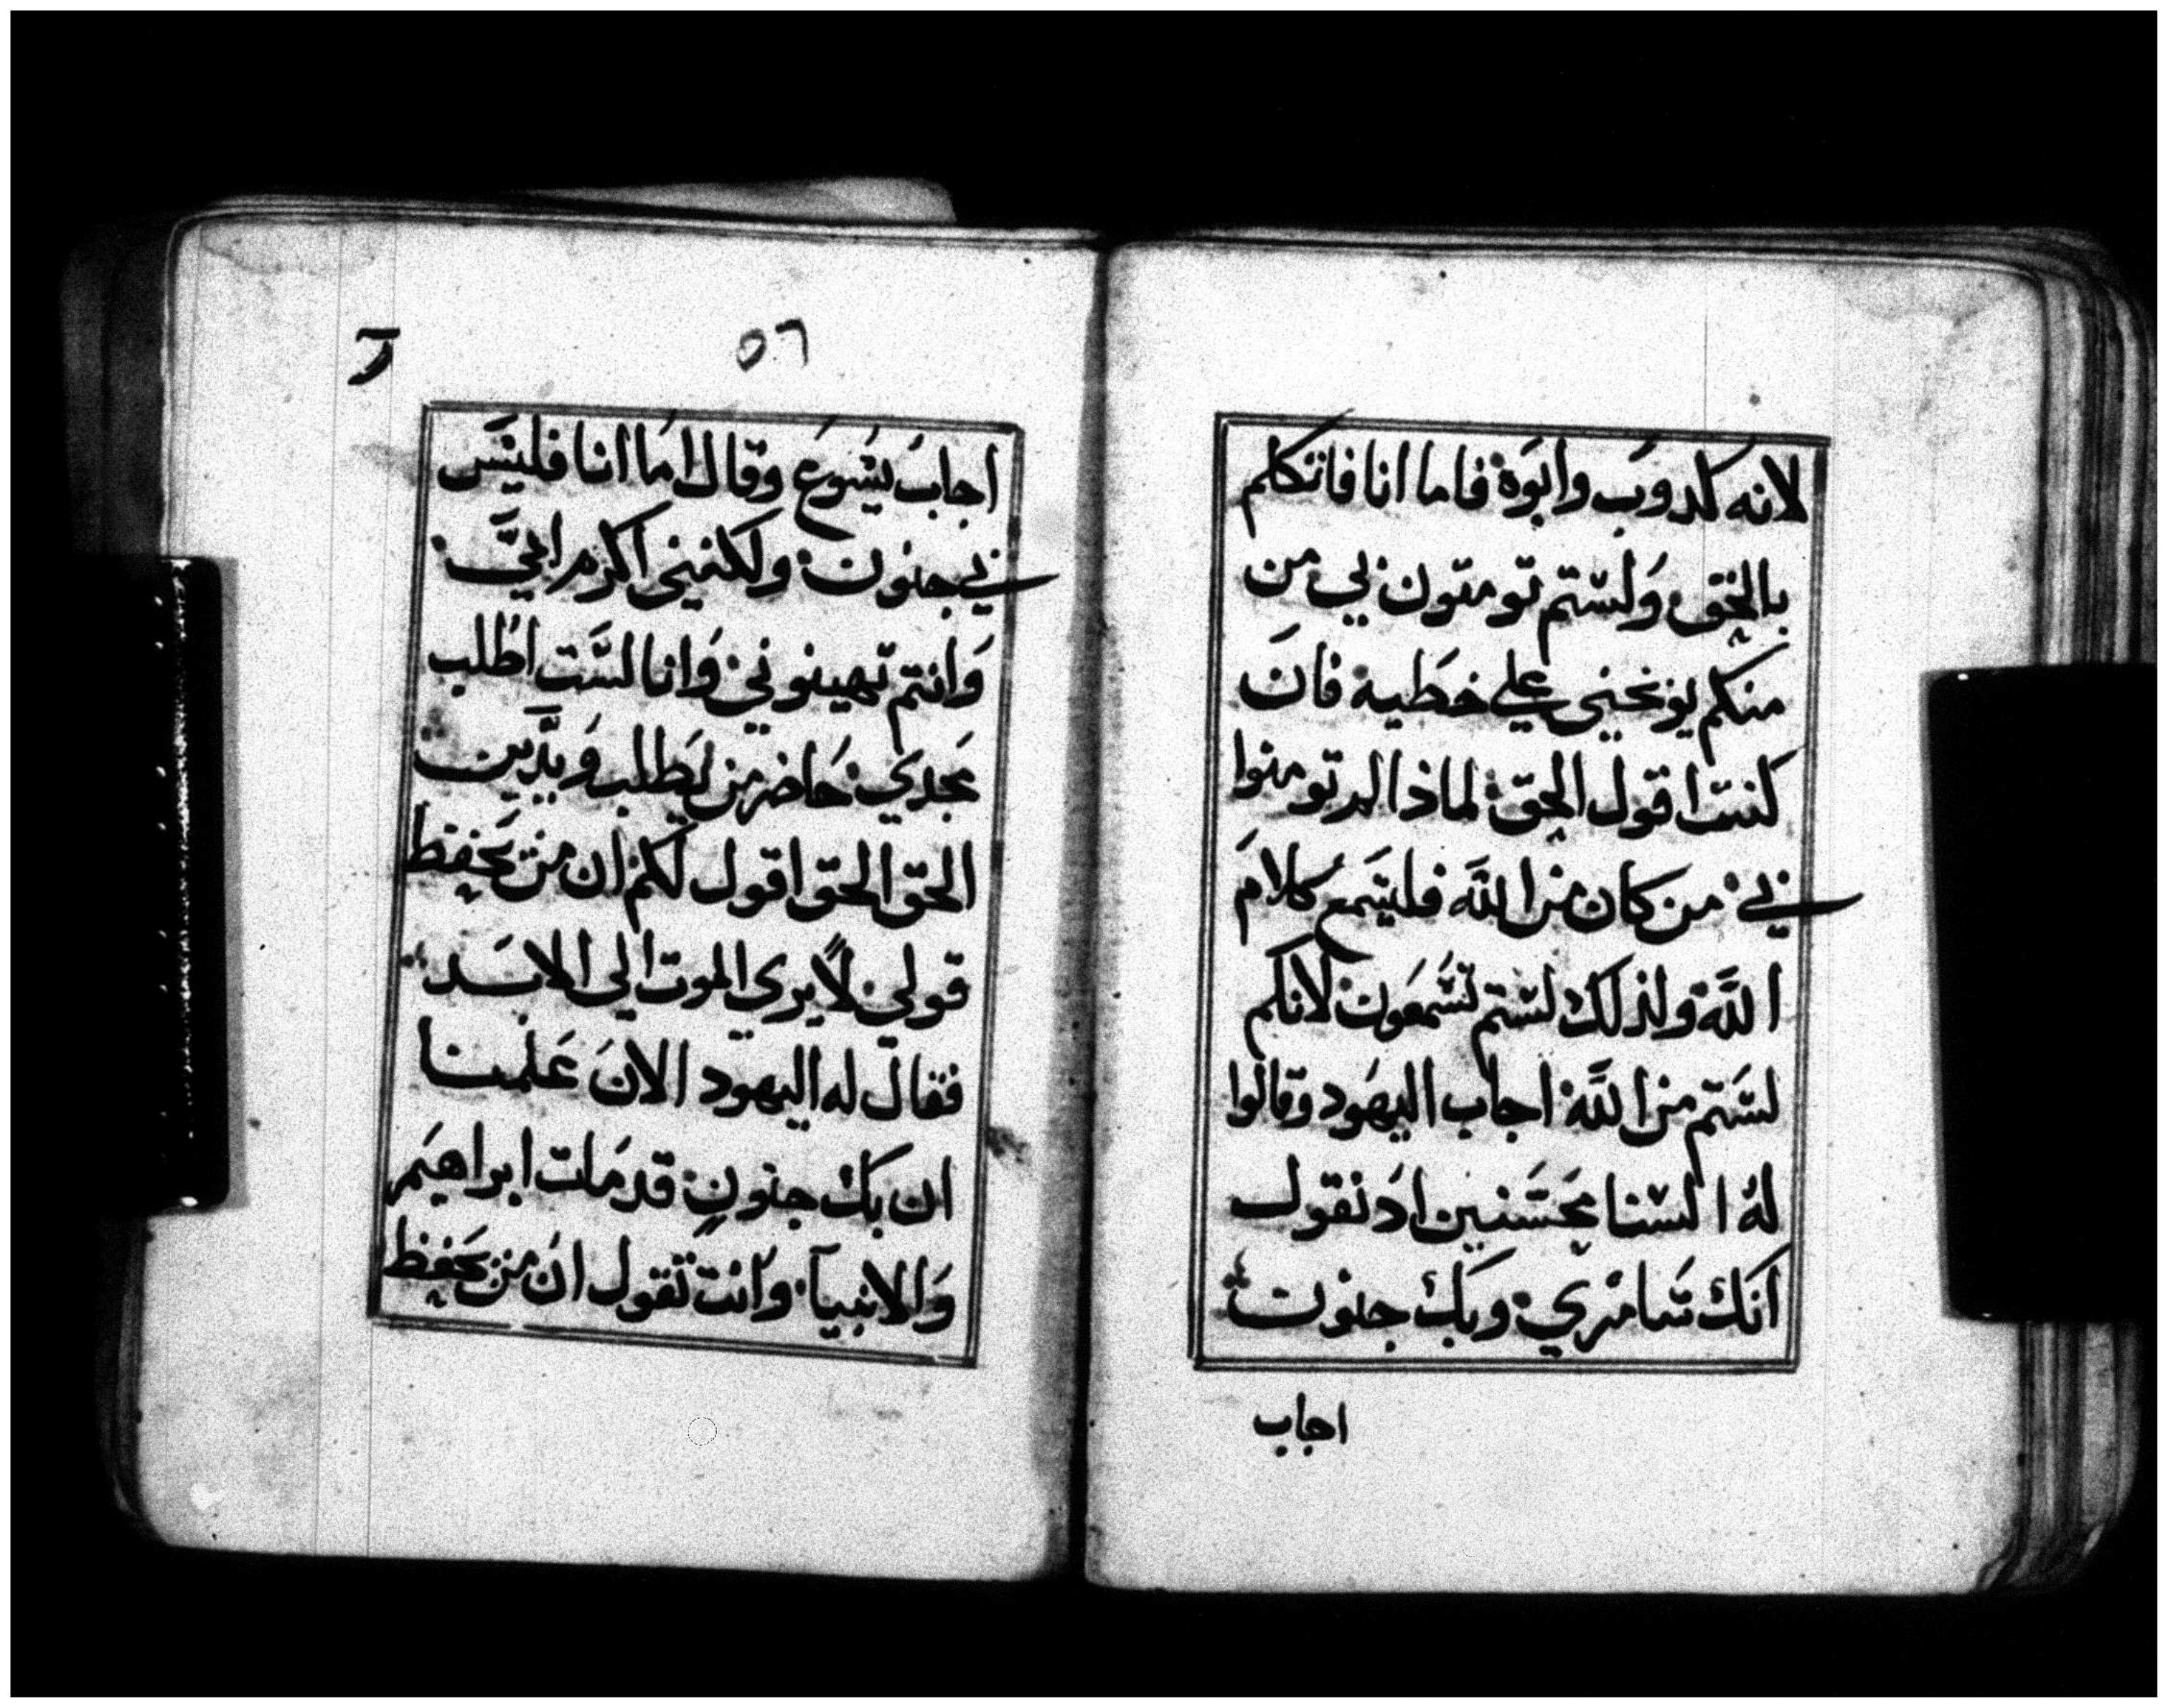 لانه كدوب وابوه فاما انا فاتكلم
بالحق ولستم تومنون بي من
منكم يوبخني علي خطيه فان
كنت اقول الحق لماذا لم تومنوا
بي من كان من الله فليسمع كلام
الله ولذلك لستم تسمعون لانكم
لستم من الله اجاب اليهود وقالوا
له السنا محسنين اد نقول
انك سامري وبك جنون
اجاب
٥٦
اجاب يسوع وقال اما انا فليس
بي جنون ولكنني اكرم ابي
وانتم تهينوني وانا لست اطلب
مجدي حاضر من يطلب ويدين
الحق الحق اقول لكم ان من يحفظ
قولي لا يري الموت الي الابد
فقال له اليهود الان علمنا
ان بك جنون قد مات ابراهيم
والانبيا وانت تقول ان من يحفظ